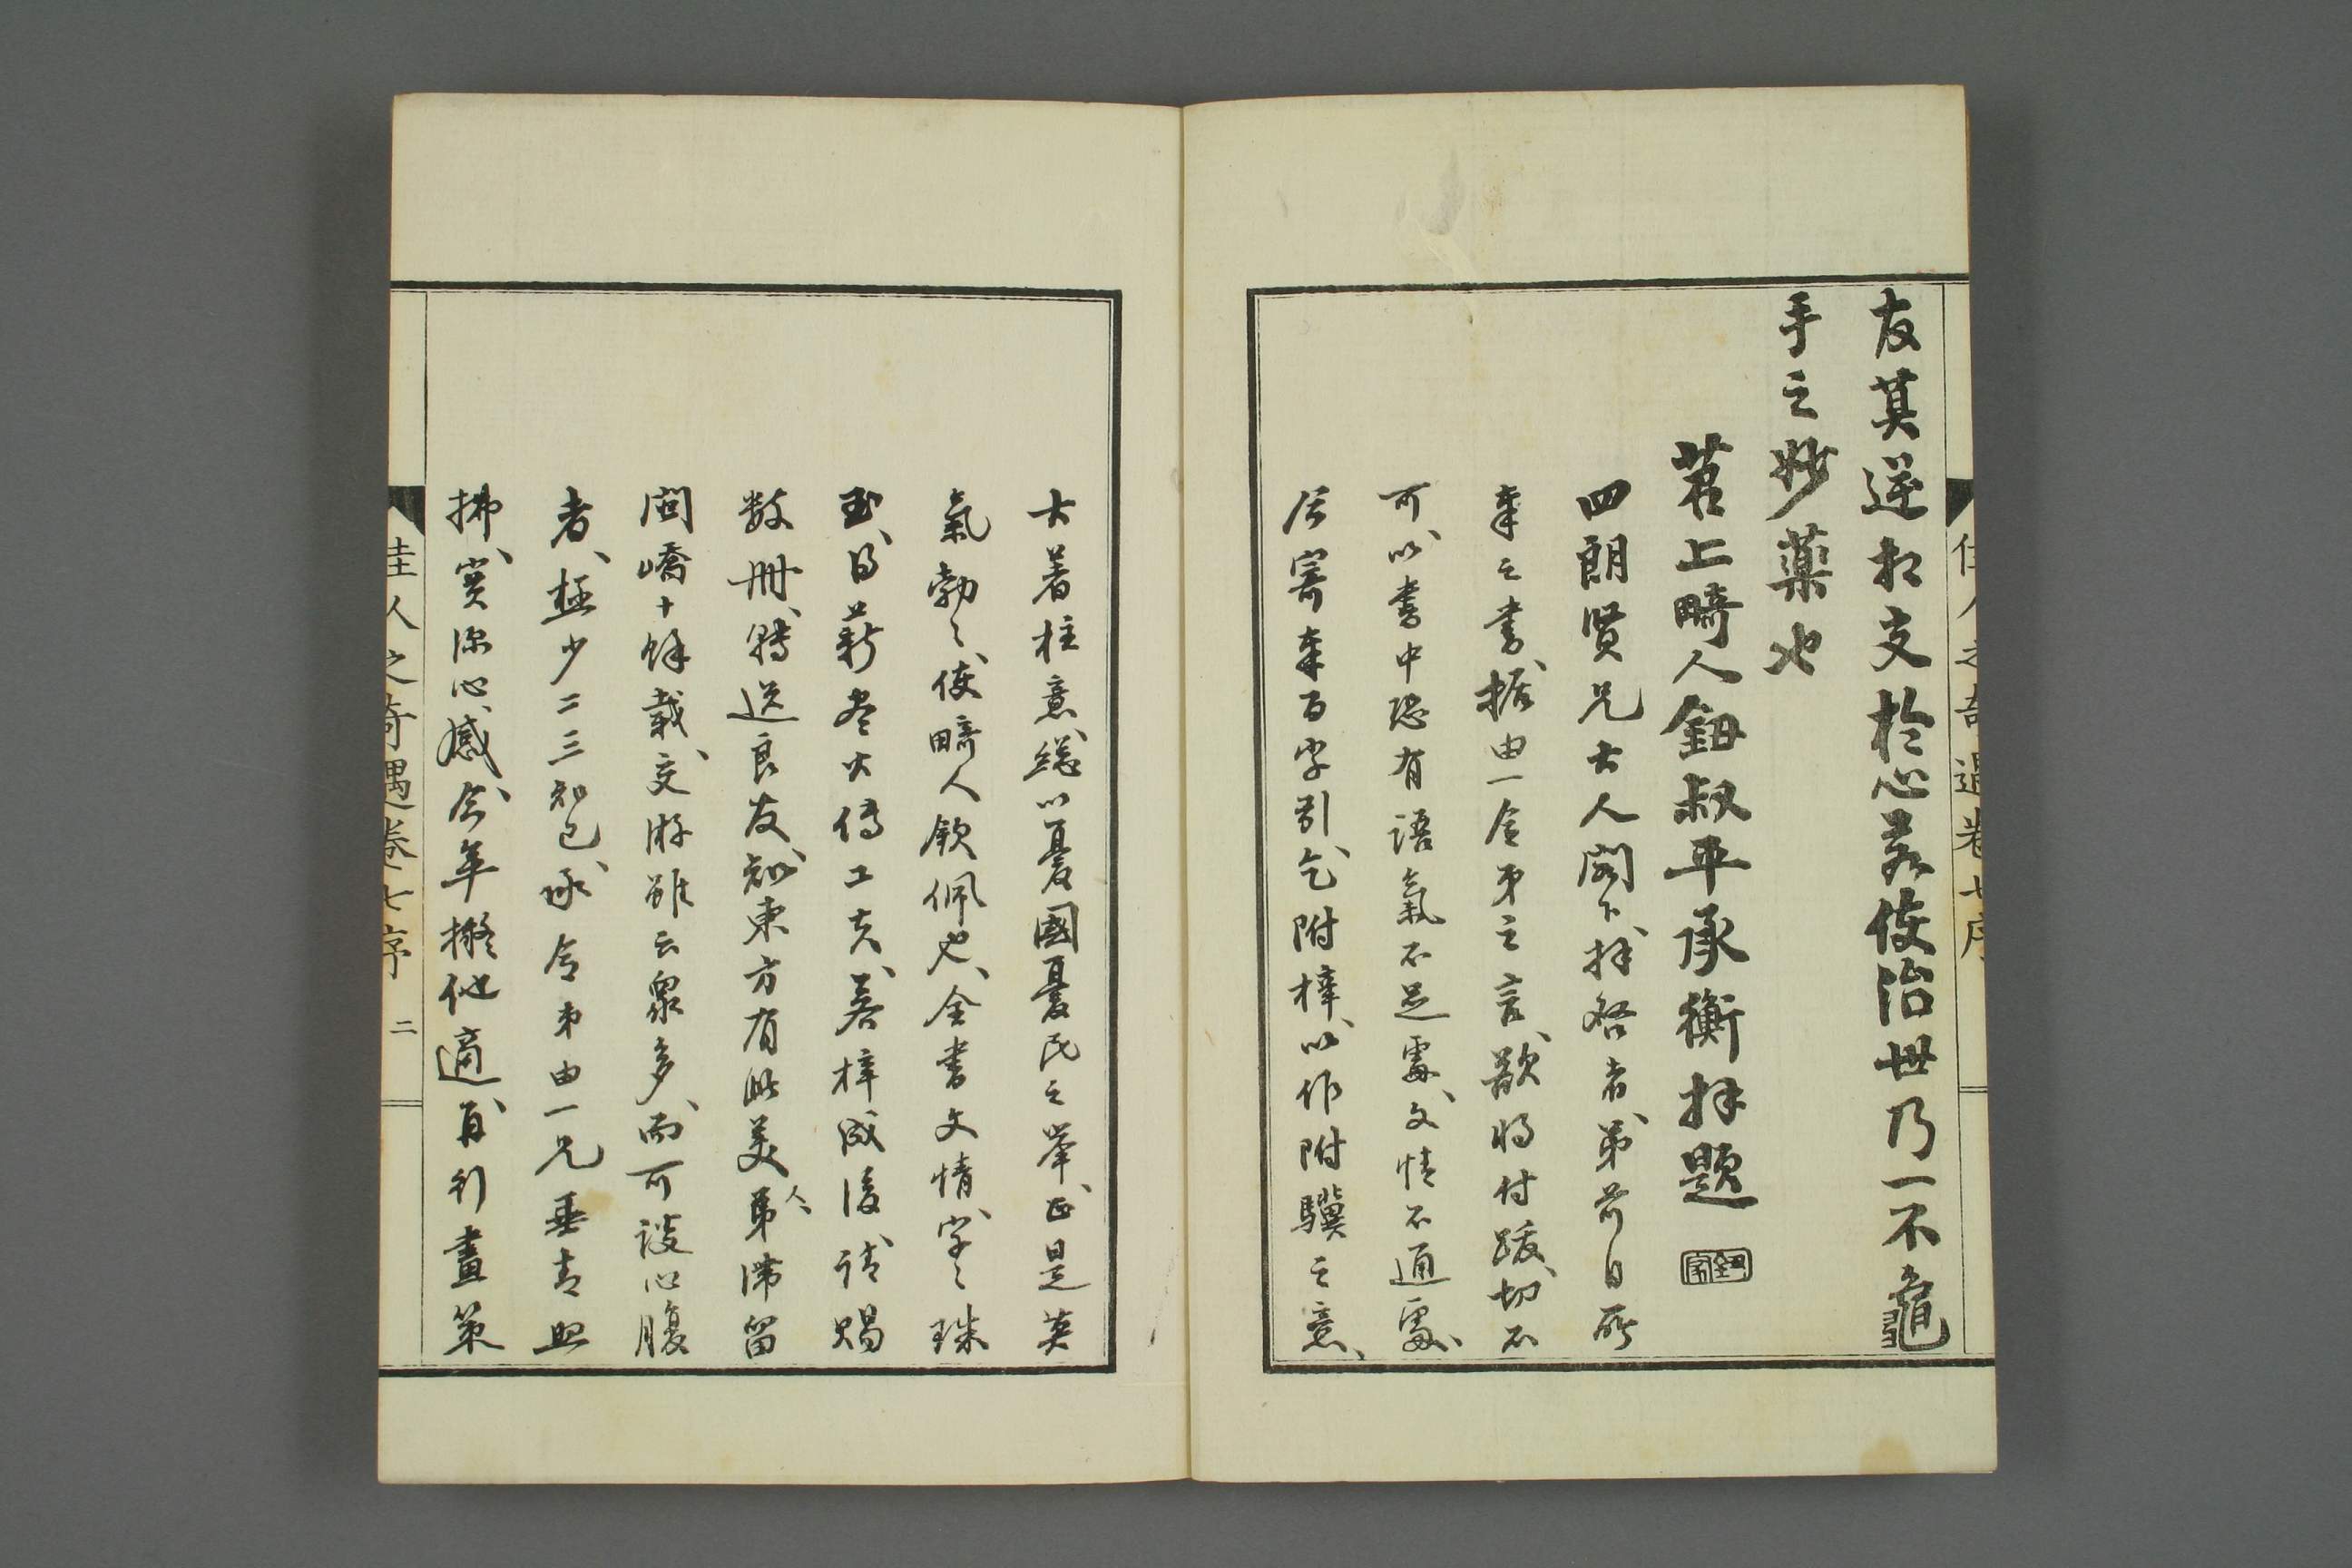 友莫逆相交於心若使治世乃一不龜
手之妙藥也
苕上畸人鈕叔平承衡拜題
四朗贤兄大人阁下、拜啓者、弟前日所
奉之書、据由一令弟之言、欲將付跋、切不
可、以書中恐有語氣不足處、文情不通處、
今寄奉百字引、乞附梓、以作附驥之意、
大著柱意、總以憂國憂民之举、正是英
氣勃〻、使畸人欽佩也、全書文情、字〻珠
玉、的薪盡火傳工夫、若梓成後、請賜
数册、轉送良友、知東方有此美人、弟滯留
閩嶠十餘載、交游雖云衆多、而可談心腹
者、極少二三知已、承令弟由一兄垂青照
拂、實深心感、今年擬他適、聿刊畫策
佳人之奇遇卷七序
佳人之奇遇卷七序 二